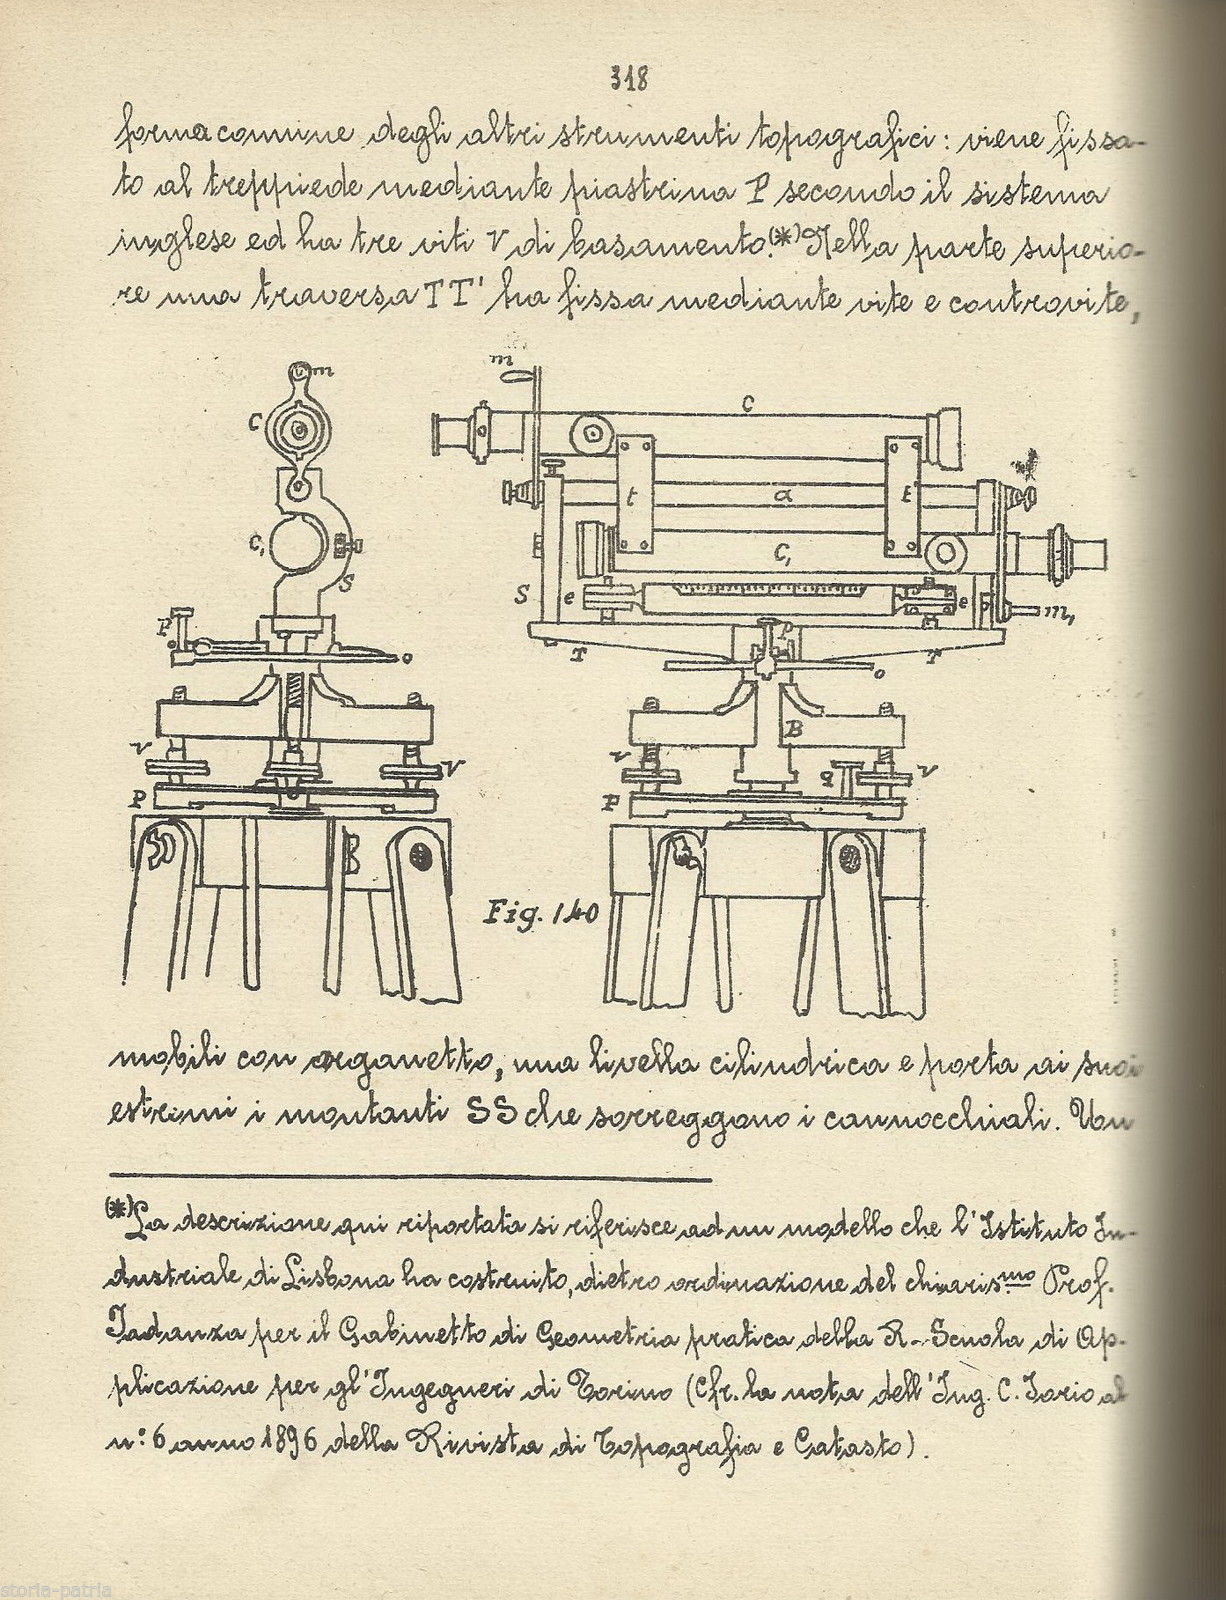 318
forma comune degli altri strumenti topografici: viene fissa-
to al treppiede mediante piastrina P secondo il sistema
inglese ed ha tre viti V di basamento.(*) Nella parte superio-
re una traversa TT' ha fissa mediante vite e controvite,
m
m
C
C
t
a
t'
C₁
C₁
S
S
e
e
m₁
P
p
T
T
o
o
B
v
V
v
q
v
P
P
Fig. 140
mobili con organetto, una livella cilindrica e porta ai suoi
estremi i montanti SS che sorreggono i cannocchiali. Un
(*) La descrizione qui riportata si riferisce ad un modello che l'Istituto In-
dustriale di Lisbona ha costruito, dietro ordinazione del chiaris.mo Prof.
Jadanza per il Gabinetto di Geometria pratica della R. Scuola di Ap-
plicazione per gl'Ingegneri di Torino (Cfr. la nota dell'Ing. C. Jorio al
n.º 6 anno 1896 della Rivista di Topografia e Catasto).
storia-patria